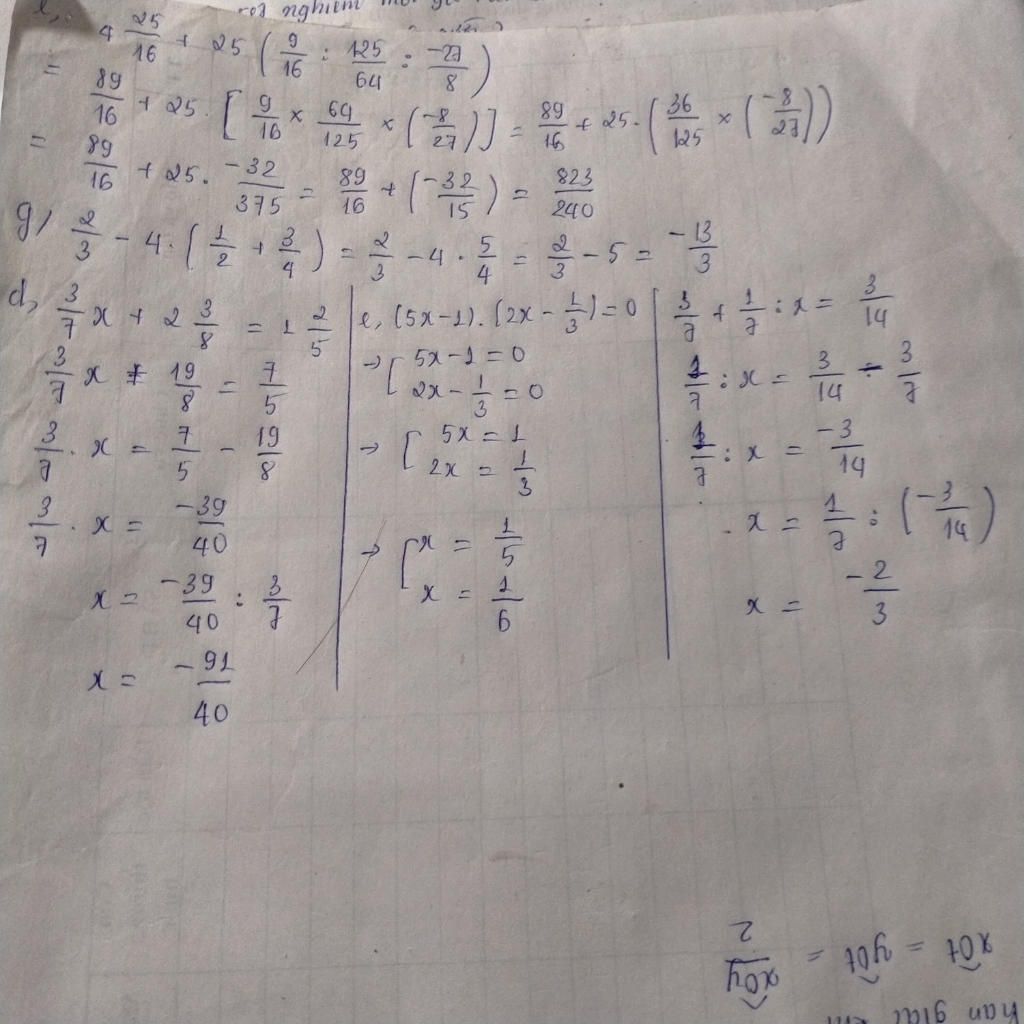 4 25/16 + 25 ( 9/16 : 125/64 : -27/8 )
= 89/16 + 25 . [ 9/16 × 64/125 × ( -8/27 ) ] = 89/16 + 25 . ( 36/125 × ( -8/27 ) )
= 89/16 + 25 . -32/375 = 89/16 + ( -32/15 ) = 823/240
g, 2/3 - 4 . ( 1/2 + 3/4 ) = 2/3 - 4 . 5/4 = 2/3 - 5 = -13/3
d, 3/7 x + 2 3/8 = 1 2/5
3/7 x + 19/8 = 7/5
3/7 . x = 7/5 - 19/8
3/7 . x = -39/40
x = -39/40 : 3/7
x = -91/40
e, (5x - 1) . (2x - 1/3) = 0
→ [ 5x - 1 = 0
2x - 1/3 = 0
→ [ 5x = 1
2x = 1/3
→ [ x = 1/5
x = 1/6
3/7 + 1/7 : x = 3/14
1/7 : x = 3/14 - 3/7
1/7 : x = -3/14
x = 1/7 : ( -3/14 )
x = -2/3
xOt = yOt = xOy/2